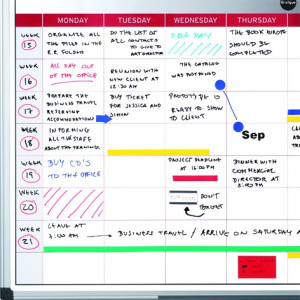 MONDAY TUESDAY WEDNESDAY THURSDAY
WEEK
15
ORGANIZE ALL
THE FILES IN THE
R.R. FOLDER
DO THE LIST OF
ALL CONTACTS
TO GIVE TO
ART DIRECTOR
THE BOOK
SHOULD BE
COMPLETED
WEEK
16
ALL DAY OUT
OF THE OFFICE
REUNION WITH
NEW CLIENT AT
THE CATALOG
WAS
WEEK
17
PREPARE THE
BUSINESS TRAVEL
ACCOMMODATIONS
BUY TICKET
FOR JESSICA AND
SIMON
PROTOTYPE IS
READY TO SHOW
TO CLIENT
Sep
WEEK
18
INFORMING
ALL THE STAFF
ABOUT THE TRAINING
WEEK
19
BUY CD'S
TO THE OFFICE
PROJECT DEADLINE
AT
DINNER WITH
COMMERCIAL
DIRECTOR AT
WEEK
20
DON'T
WEEK
21
LEAVE AT
BUSINESS TRAVEL / ARRIVE ON SATURDAY